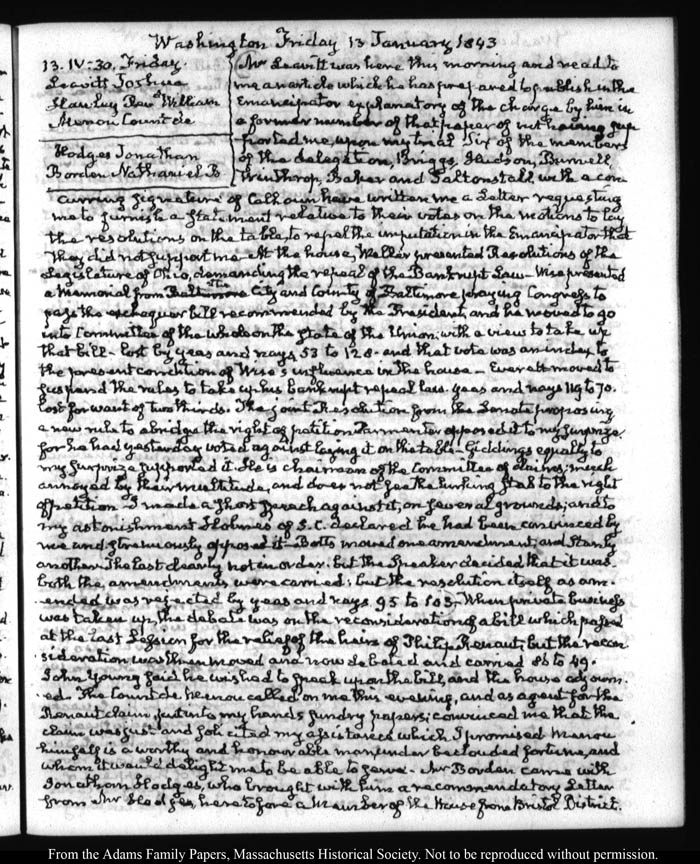 Washington Friday 13 January 1843
13. IV-30. Friday.
Leavitt Joshua
Hawley Revd. William
Menou Count de
Hodges Jonathan
Borden Nathaniel B
Mr Leavitt was here this morning and read to
me an article which he has prepared to publish in the
Emancipator explanatory of the charge by him in
a former number of that paper of not having sup-
ported me, upon my trial Six of the members
of the delegation, Briggs, Hudson, Burnell,
Winthrop, Baker and Saltonstall with a con-
curring signature of Calhoun have written me a Letter requesting
me to furnish a statement relative to their votes on the motions to lay
the resolutions on the table, to repel the imputation in the Emancipator that
they did not support me. At the house, Weller presented Resolutions of the
Legislature of Ohio, demanding the repeal of the Bankrupt Law- Wise presented
a Memorial from the City and County of Baltimore praying Congress to
pass the exchequer bill recommended by the President, and he moved to go
into Committee of the whole on the state of the Union, with a view to take up
that bill- lost by yeas and nays 53 to 128- and that vote was an index to
the present condition of Wise's influence in the house- Everett moved to
suspend the rules to take up his bankrupt repeal law- yeas and nays 119 to 70.
lost for want of two thirds. The joint Resolution from the Senate proposing
a new rule to abridge the right of petition Parmenter opposed it to my surprize
for he had yesterday voted against laying it on the table- Giddings equally to
my surprize supported it. He is chairman of the Committee of claims, much
annoyed by their multitude, and does not see the lurking stab to the right
of petition- I made a short speech against it, on several grounds; and to
my astonishment Holmes of S.C. declared he had been convinced by
me and strenuously opposed it- Botts moved one amendment, and Stanly
another. The last clearly not in order. but the Speaker decided that it was.
both the amendments were carried; but the resolution itself as am-
ended was rejected by yeas and nays. 95 to 103- When private business
was taken up, the debate was on the reconsideration of a bill which passed
at the last Session for the relief of the heirs of Philip Renaut; but the recon-
sideration was then moved and now debated and carried 86 to 49.
John Young said he wished to speak upon the bill, and the house adjourn-
ed. The Count de Menou called on me this evening, and as agent for the
Renaut claim, put into my hands sundry papers; convinced me that the
claim was just and solicited my assistance which I promised Menou
himself is a worthy and honourable man, under beclouded fortune, and
whom it would delight me to be able to serve- Mr Borden came with
Jonathan Hodges, who brought with him a recommendatory Letter
from Mr Hodges, heretofore a Member of the House from Bristol District.
From the Adams Family Papers, Massachusetts Historical Society. Not to be reproduced without permission.